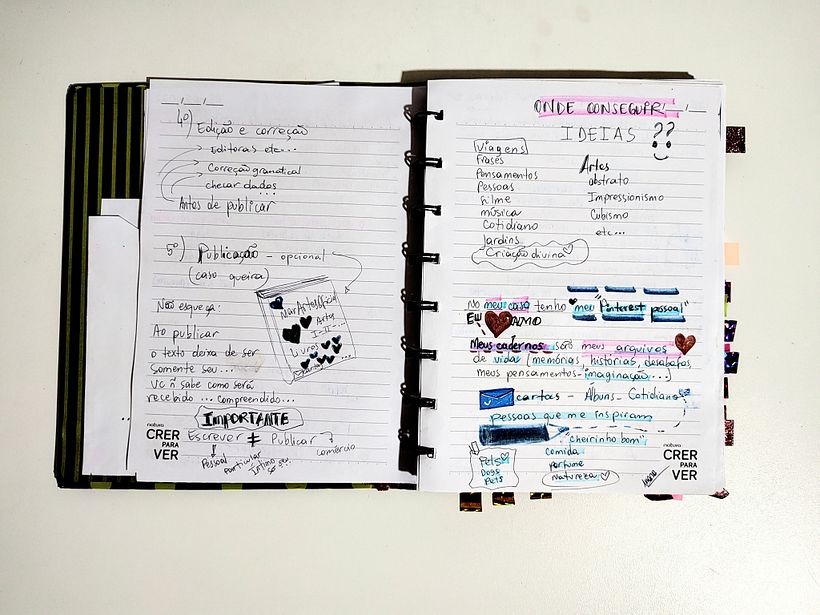 __/__/__
4º) Edição e correção
Editoras etc...
Correção gramatical
checar dados
...
Antes de publicar
5º) Publicação - opcional
(caso queira)
NarArtesOficial
Artes
I-II-...
Livros
Não esqueça:
Ao publicar
o texto deixa de ser
somente seu...
vc ñ sabe como será
recebido ... compreendido...
IMPORTANTE
Escrever ≠ Publicar
Pessoal particular Íntimo
comércio
natura
CRER
PARA
VER
ONDE CONSEGUIR
IDEIAS ??
Viagens
Frases
Pensamentos
Pessoas
filme
música
Cotidiano
Jardins
Criação divina
Artes
abstrato
Impressionismo
Cubismo
etc...
No meu caso tenho "meu Pinterest pessoal"
EU AMO
Meus cadernos são meus arquivos
de vida (memórias, histórias, desabafos,
meus pensamentos - imaginação...)
cartas - Álbuns - Cotidiano
pessoas que me inspiram
"cheirinho bom"
comida
Perfume
Natureza
Pets
Dogs
Pets
natura
CRER
PARA
VER